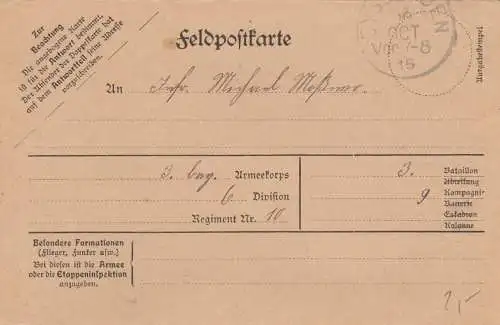 Zur
Beachtung
Die anhebogene Karte
ist für die Antwort bestimmt.
Der Absender der Doppelkarte hat
auf dem Antwortteil seine Adresse
vorzuschreiben.
Feldpostkarte
OCT
Vor 7-8
15
Ausgabestempel
An Inf. Michael
3. bay. Armeekorps
6 Division
Regiment Nr. 10
3. Bataillon
Abteilung
9 Kompagnie
Batterie
Eskadron
Kolonne
Besondere Formationen
(Flieger, Funker usw.)
Bei diesen ist die Armee
oder die Etappeninspektion
anzugeben.
2,-